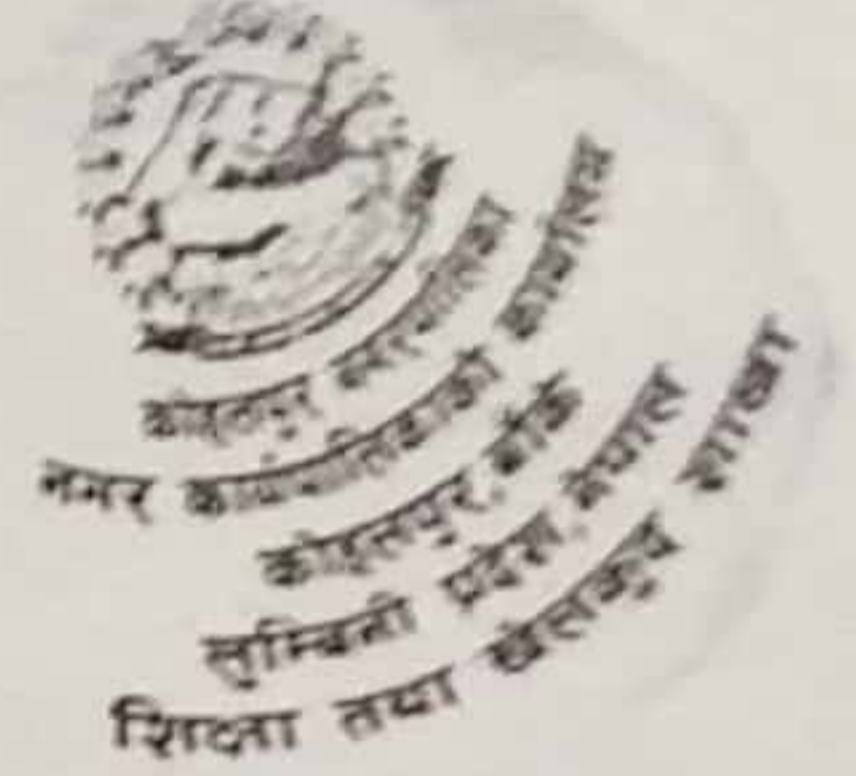 कोहलपुर नगरपालिका
नगर कार्यपालिकाको कार्यालय
कोहलपुर, बाँके
लुम्बिनी प्रदेश, नेपाल
शिक्षा तथा खेलकुद शाखा